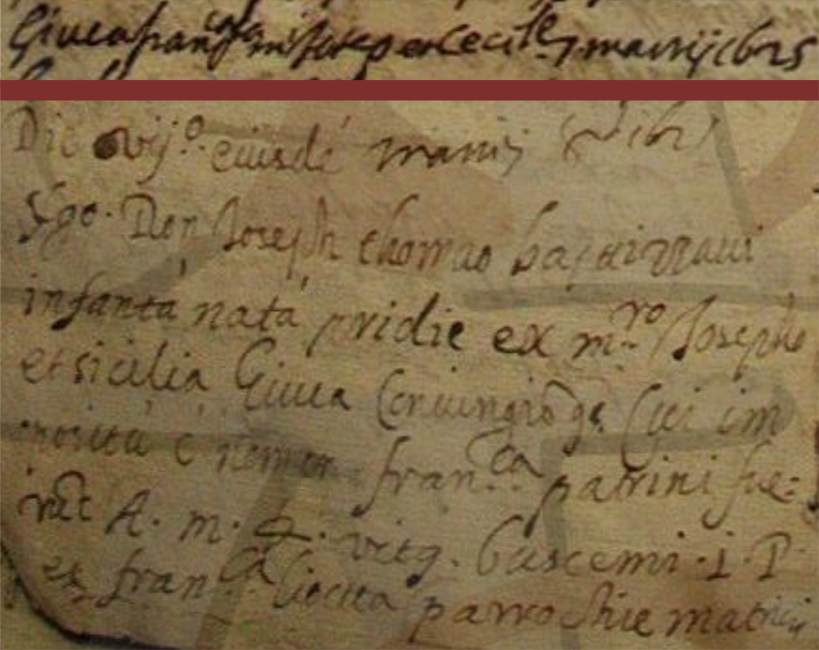 Giuca fran^ca m^o Josepe et Cecilie 7 martij 1625
Die vij^o eiusdé martij
Ego Don Joseph thomao baptizzaui
infantá natá pridie ex m^ro Josepho
et sicilia Giuca Coniungibȝ Cui im
posità è nomen fran^ca patrini fue:
rút A. m. vitȝ. Guscemi i P
et fran^ca parrochie matricis